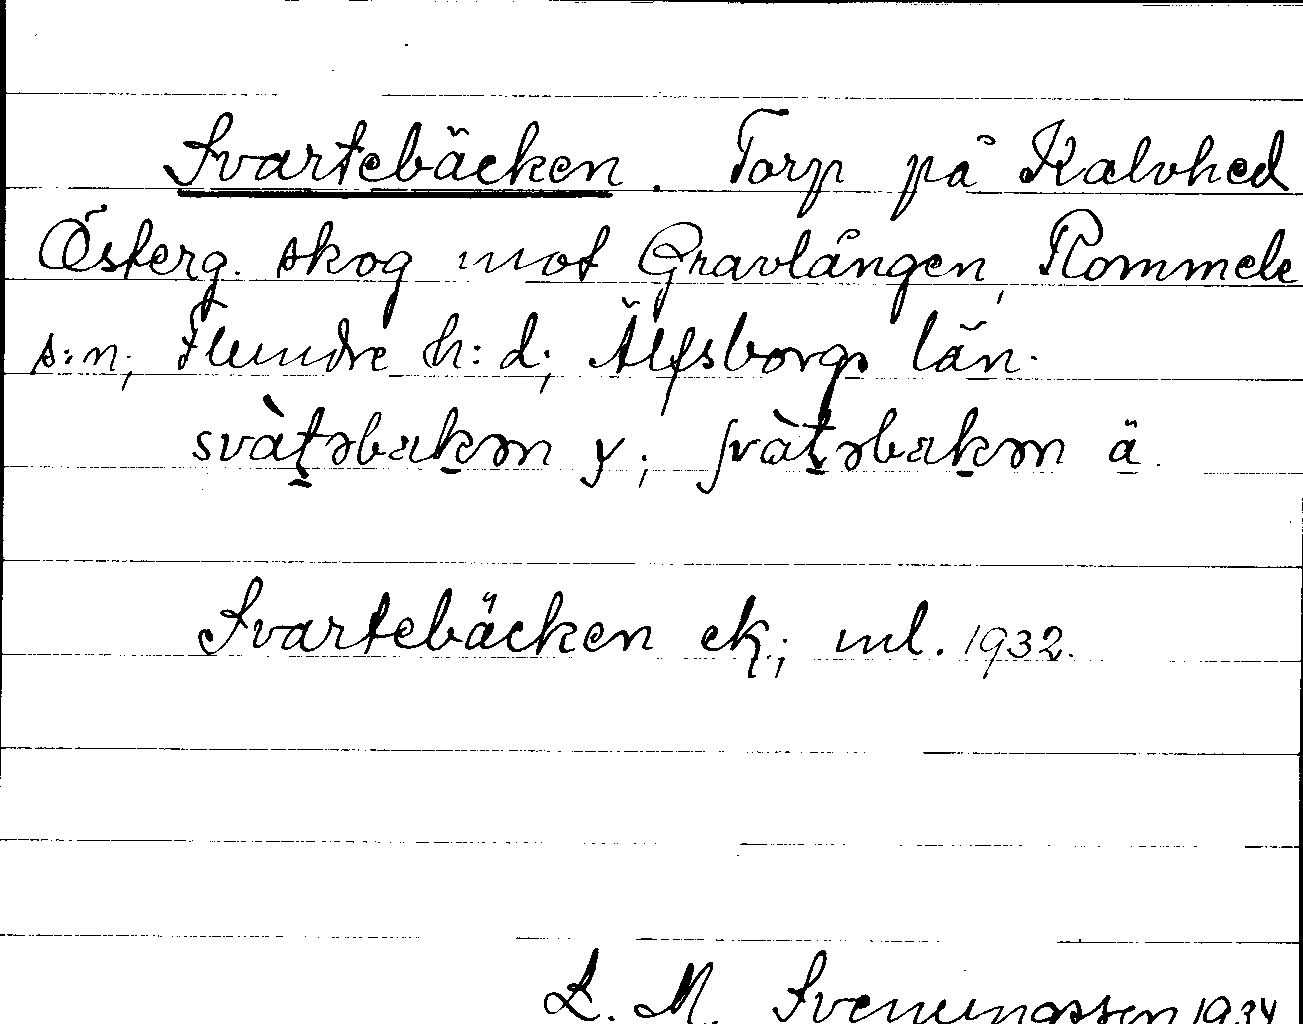 Svartebäcken. Torp på Kalvhed
Österg. skog mot Gravlången, Rommele
s:n, Flundre h:d, Älfsborgs län.
svàt̠əbäk̠ən y; ʃvàt̠əbäk̠ən ä.
Svartebäcken ek; ml. 1932.
L. M. Svenungsson 1934